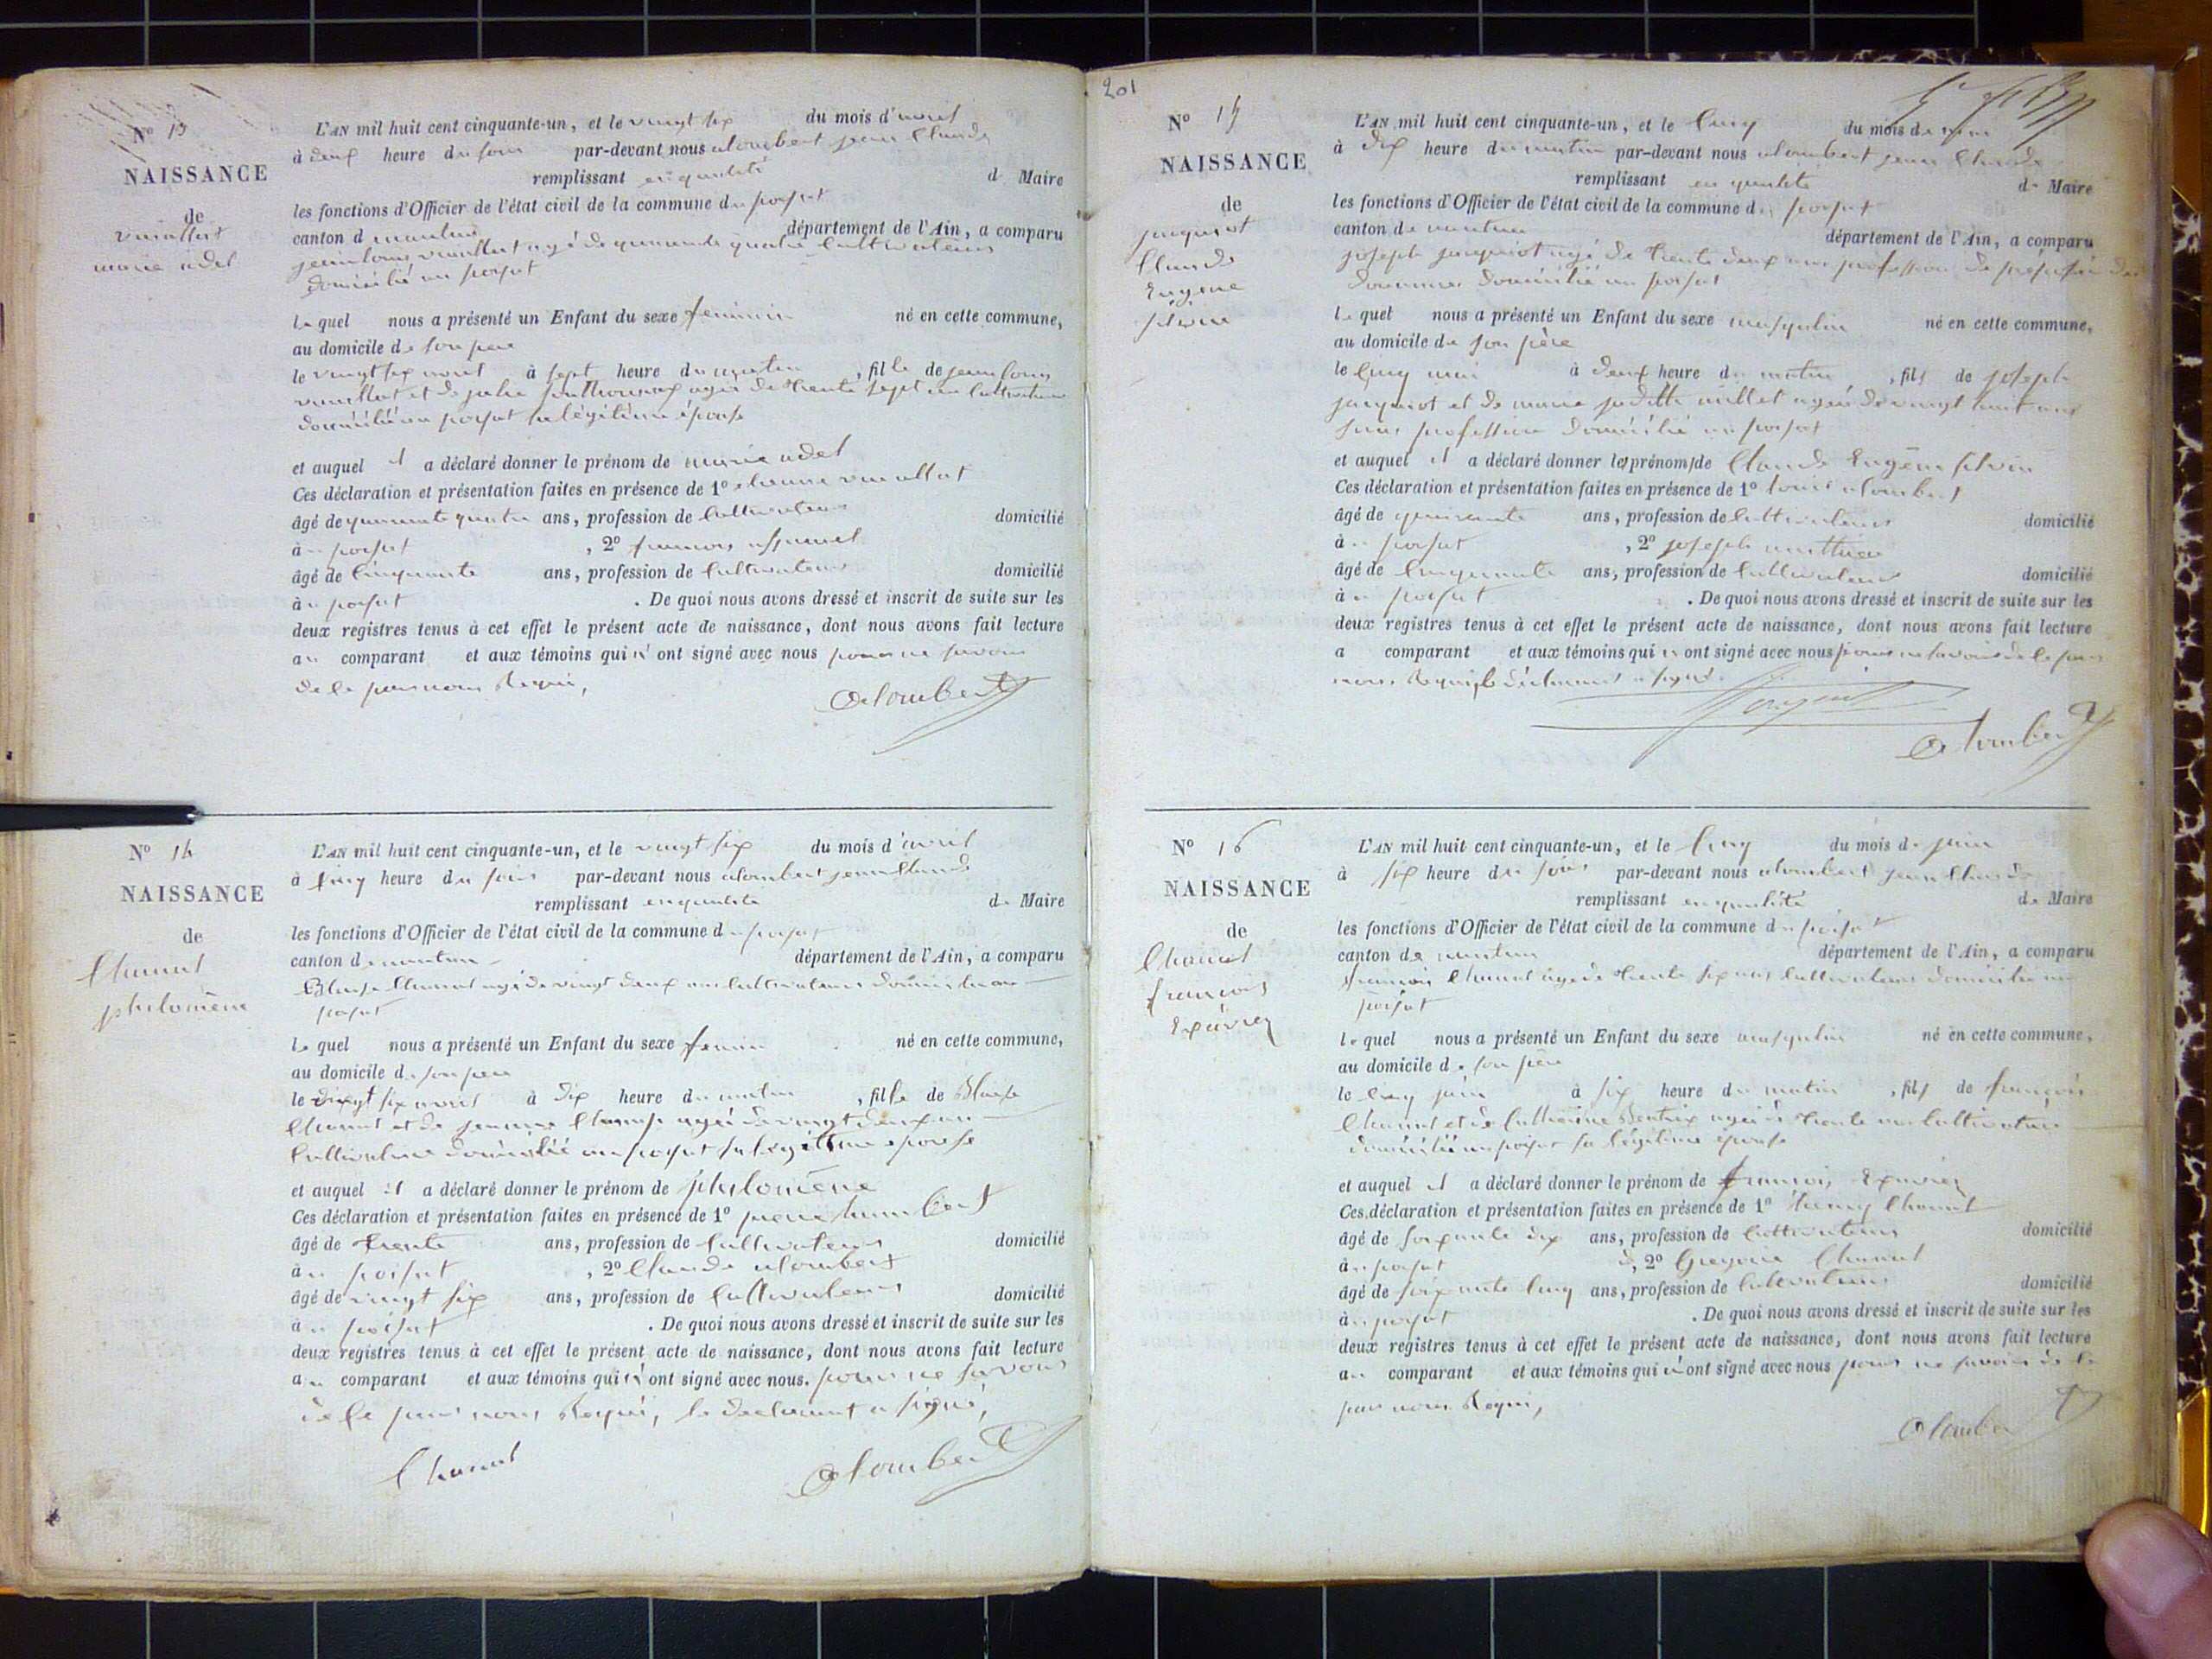 N° 13
NAISSANCE
de
vuaillat
marie adel
L'AN mil huit cent cinquante-un, et le vingt six du mois d'avril
à deux heure du soir par-devant nous alombert jean Claude
remplissant en qualité de Maire
les fonctions d'Officier de l'état civil de la commune du poisat
canton de nantua département de l'Ain, a comparu
jean louis vuaillat agé de quarante quatre Cultivateur
domicilié au poisat
lequel nous a présenté un Enfant du sexe feminin né en cette commune,
au domicile de son père
le vingt six avril à sept heure du matin, fille de jean louis
vuaillat et de julie agée de trente sept ans Cultivatrice
domiciliée au poisat sa légitime épouse
et auquel il a déclaré donner le prénom de marie adel
Ces déclaration et présentation faites en présence de 1° etienne vuaillat
âgé de quarante quatre ans, profession de Cultivateur domicilié
à au poisat, 2° francois
âgé de Cinquante ans, profession de Cultivateur domicilié
à au poisat. De quoi nous avons dressé et inscrit de suite sur les
deux registres tenus à cet effet le présent acte de naissance, dont nous avons fait lecture
au comparant et aux témoins qui n'ont signé avec nous pour ne savoir
de le par nous Requi,
Alombert
N° 14
NAISSANCE
de
Chanut
philomène
L'AN mil huit cent cinquante-un, et le vingt six du mois d'avril
à Cinq heure du soir par-devant nous alombert jean Claude
remplissant en qualité de Maire
les fonctions d'Officier de l'état civil de la commune du poisat
canton de nantua département de l'Ain, a comparu
Blaise Chanut agé de vingt deux ans Cultivateur domicilié au
poisat
lequel nous a présenté un Enfant du sexe feminin né en cette commune,
au domicile de son père
le vingt six avril à dix heure du matin, fille de Blaise
Chanut et de jeanne agée de vingt deux ans
Cultivatrice domiciliée au poisat sa légitime épouse
et auquel il a déclaré donner le prénom de philomène
Ces déclaration et présentation faites en présence de 1° pierre humbert
âgé de trente ans, profession de Cultivateur domicilié
à au poisat, 2° Claude alombert
âgé de vingt six ans, profession de Cultivateur domicilié
à au poisat. De quoi nous avons dressé et inscrit de suite sur les
deux registres tenus à cet effet le présent acte de naissance, dont nous avons fait lecture
au comparant et aux témoins qui n'ont signé avec nous. pour ne savoir
de le par nous Requi, le declarant a signé,
Chanut
Alombert
201
N° 15
NAISSANCE
de
jacquiot
Claude
Eugene
silvin
L'AN mil huit cent cinquante-un, et le Cinq du mois de mai
à dix heure du matin par-devant nous alombert jean Claude
remplissant en qualité de Maire
les fonctions d'Officier de l'état civil de la commune du poisat
canton de nantua département de l'Ain, a comparu
joseph jacquiot agé de trente deux ans profession de préposé des
douanes domicilié au poisat
lequel nous a présenté un Enfant du sexe masqulin né en cette commune,
au domicile de son père
le Cinq mai à deux heure du matin, fils de joseph
jacquiot et de marie juditte millet agée de vingt huit ans
sans profession domicilié au poisat
et auquel il a déclaré donner les prénoms de Claude Eugène silvin
Ces déclaration et présentation faites en présence de 1° louis alombert
âgé de quarante ans, profession de Cultivateur domicilié
à au poisat, 2° joseph matthieu
âgé de Cinquante ans, profession de Cultivateur domicilié
à au poisat. De quoi nous avons dressé et inscrit de suite sur les
deux registres tenus à cet effet le présent acte de naissance, dont nous avons fait lecture
a comparant et aux témoins qui n'ont signé avec nous pour ne savoir de le par
nous Requi le déclarant a signé.
Alombert
N° 16
NAISSANCE
de
Chanut
francois
Exavier
L'AN mil huit cent cinquante-un, et le Cinq du mois de juin
à six heure du soir par-devant nous alombert jean Claude
remplissant en qualité de Maire
les fonctions d'Officier de l'état civil de la commune du poisat
canton de nantua département de l'Ain, a comparu
francois Chanut agé de trente six ans Cultivateur domicilié au
poisat
lequel nous a présenté un Enfant du sexe masqulin né en cette commune,
au domicile de son père
le Cinq juin à six heure du matin, fils de françois
Chanut et de Catherine agée de trente ans Cultivatrice
domiciliée au poisat sa légitime épouse
et auquel il a déclaré donner le prénom de francois Exavier
Ces déclaration et présentation faites en présence de 1° Chanut
âgé de soixante dix ans, profession de Cultivateur domicilié
à au poisat, 2° Gregoire Chanut
âgé de soixante Cinq ans, profession de Cultivateur domicilié
à au poisat. De quoi nous avons dressé et inscrit de suite sur les
deux registres tenus à cet effet le présent acte de naissance, dont nous avons fait lecture
au comparant et aux témoins qui n'ont signé avec nous pour ne savoir de le
par nous Requi,
Alombert